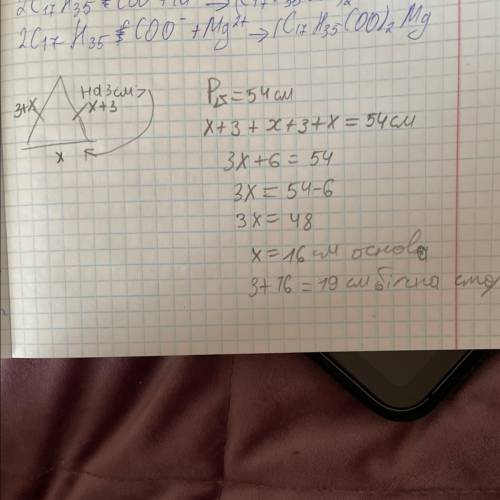 2C₁₇H₃₅COO⁻ + Mg²⁺ → (C₁₇H₃₅COO)₂Mg
на 3 см >
3+x
x+3
x
P = 54 см
x+3+x+3+x=54 см
3x+6=54
3x=54-6
3x=48
x=16 см основа
3+16=19 см бічна